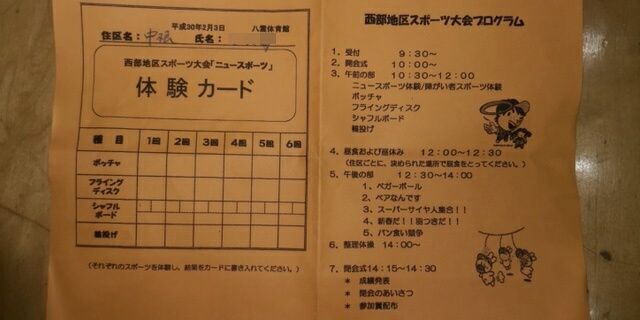 平成30年2月3日 八雲体育館
住区名：中根 氏名：
西部地区スポーツ大会「ニュースポーツ」
体験カード
種目 1回 2回 3回 4回 5回 6回
ボッチャ
フライングディスク
シャフルボード
輪投げ
（それぞれのスポーツを体験し、結果をカードに書き入れてください。）
西部地区スポーツ大会プログラム
1．受付 9：30～
2．開会式 10：00～
3．午前の部 10：30～12：00
ニュースポーツ体験/障がい者スポーツ体験
ボッチャ
フライングディスク
シャフルボード
輪投げ
4．昼食および昼休み 12：00～12：30
（住区ごとに、決められた場所で昼食をとってください。）
5．午後の部 12：30～14：00
1、ペガーボール
2、ペアなんです
3、スーパーサイヤ人集合！！
4、新春だ！！羽つきだ！！
5、パン食い競争
6．整理体操 14：00～
7．閉会式14：15～14：30
＊ 成績発表
＊ 閉会のあいさつ
＊ 参加賞配布